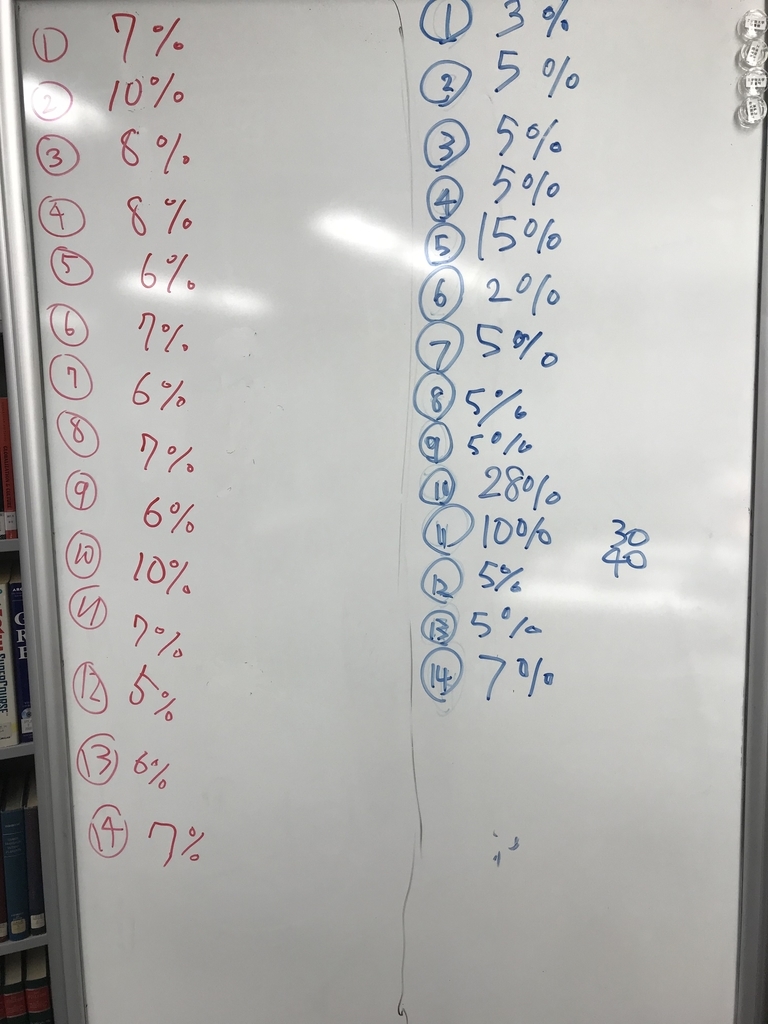 ① 7%
② 10%
③ 8%
④ 8%
⑤ 6%
⑥ 7%
⑦ 6%
⑧ 7%
⑨ 6%
⑩ 10%
⑪ 7%
⑫ 5%
⑬ 6%
⑭ 7%
① 3%
② 5%
③ 5%
④ 5%
⑤ 15%
⑥ 2%
⑦ 5%
⑧ 5%
⑨ 5%
⑩ 28%
⑪ 10%
⑫ 5%
⑬ 5%
⑭ 7%
30
40